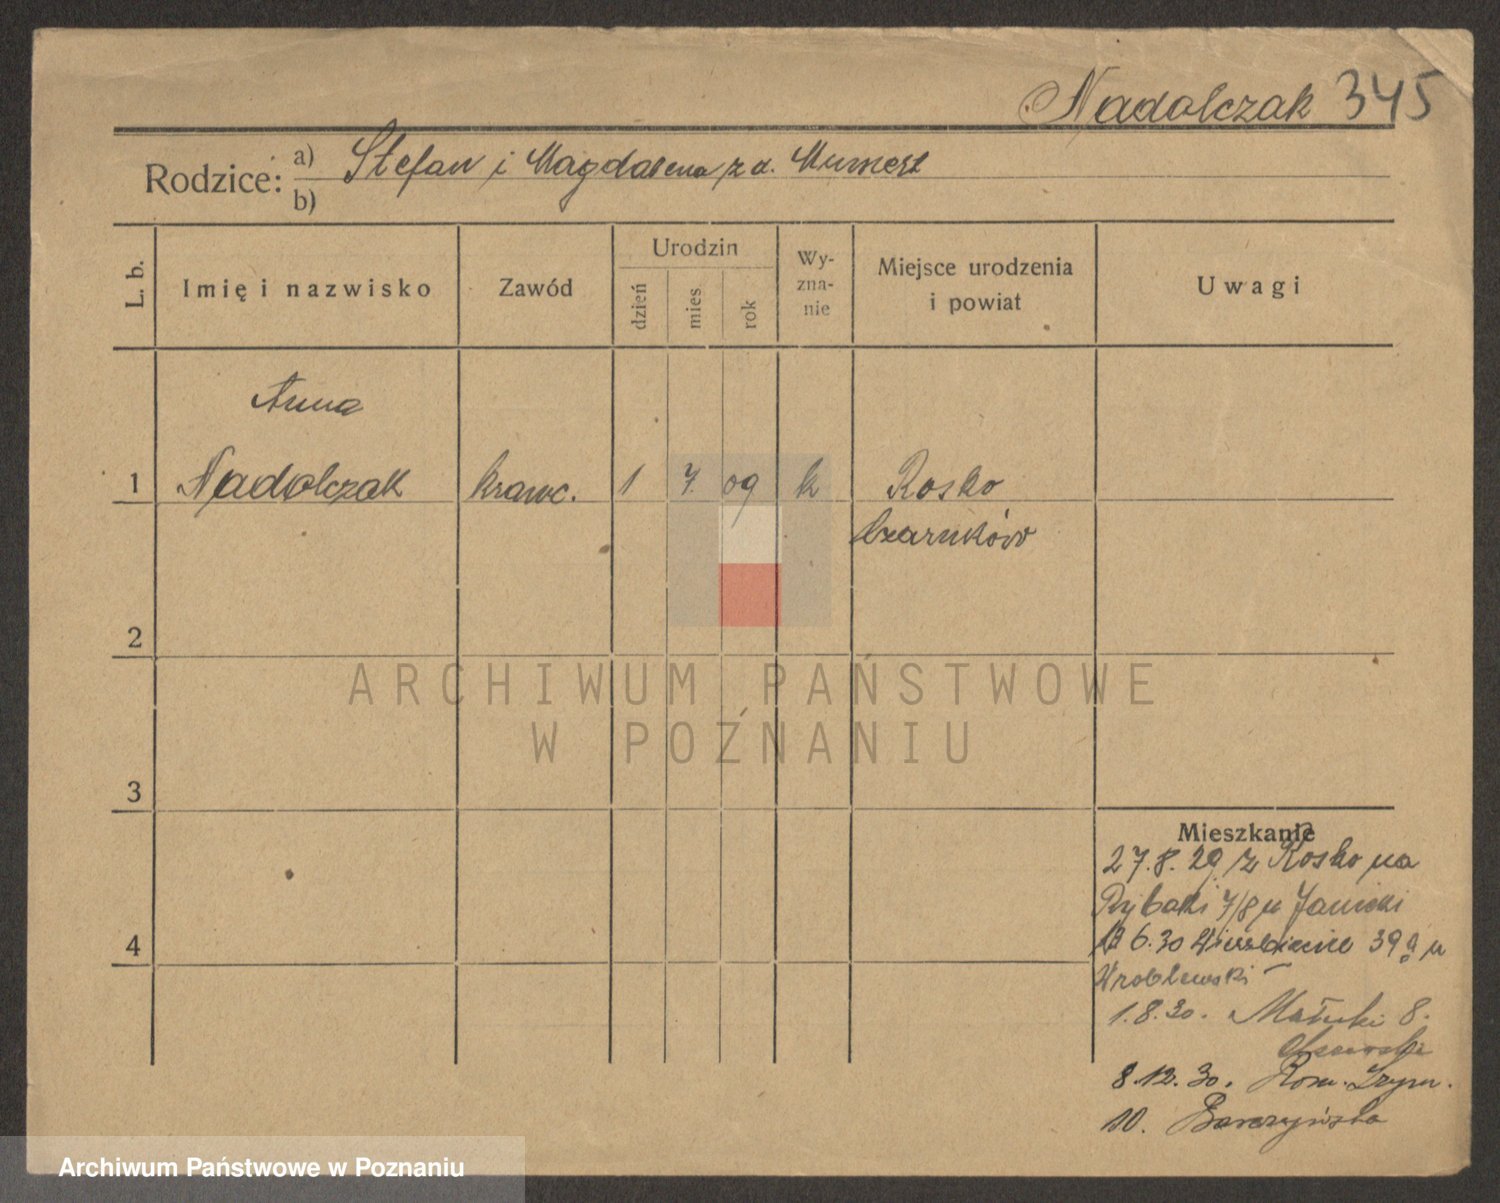 Nadolczak 345
Rodzice: a) Stefan i Magdalena z d.
b)
L. b.
Imię i nazwisko
Zawód
Urodzin
dzień
mies.
rok
Wy-
zna-
nie
Miejsce urodzenia
i powiat
Uwagi
Anna
1 Nadolczak krawc. 1 7. 09 k Rosko
Czarnków
2
3
4
ARCHIWUM PAŃSTWOWE
W POZNANIU
Mieszkanie
27.8.29 z Rosko na
Rybaki 7/8 u Janicki
6.30 Wierzbięcice 39a u
Wroblewski
1.8.30. Małecki 8.
8.12.30. Rom. Szym.
10. Barczyńska
Archiwum Państwowe w Poznaniu